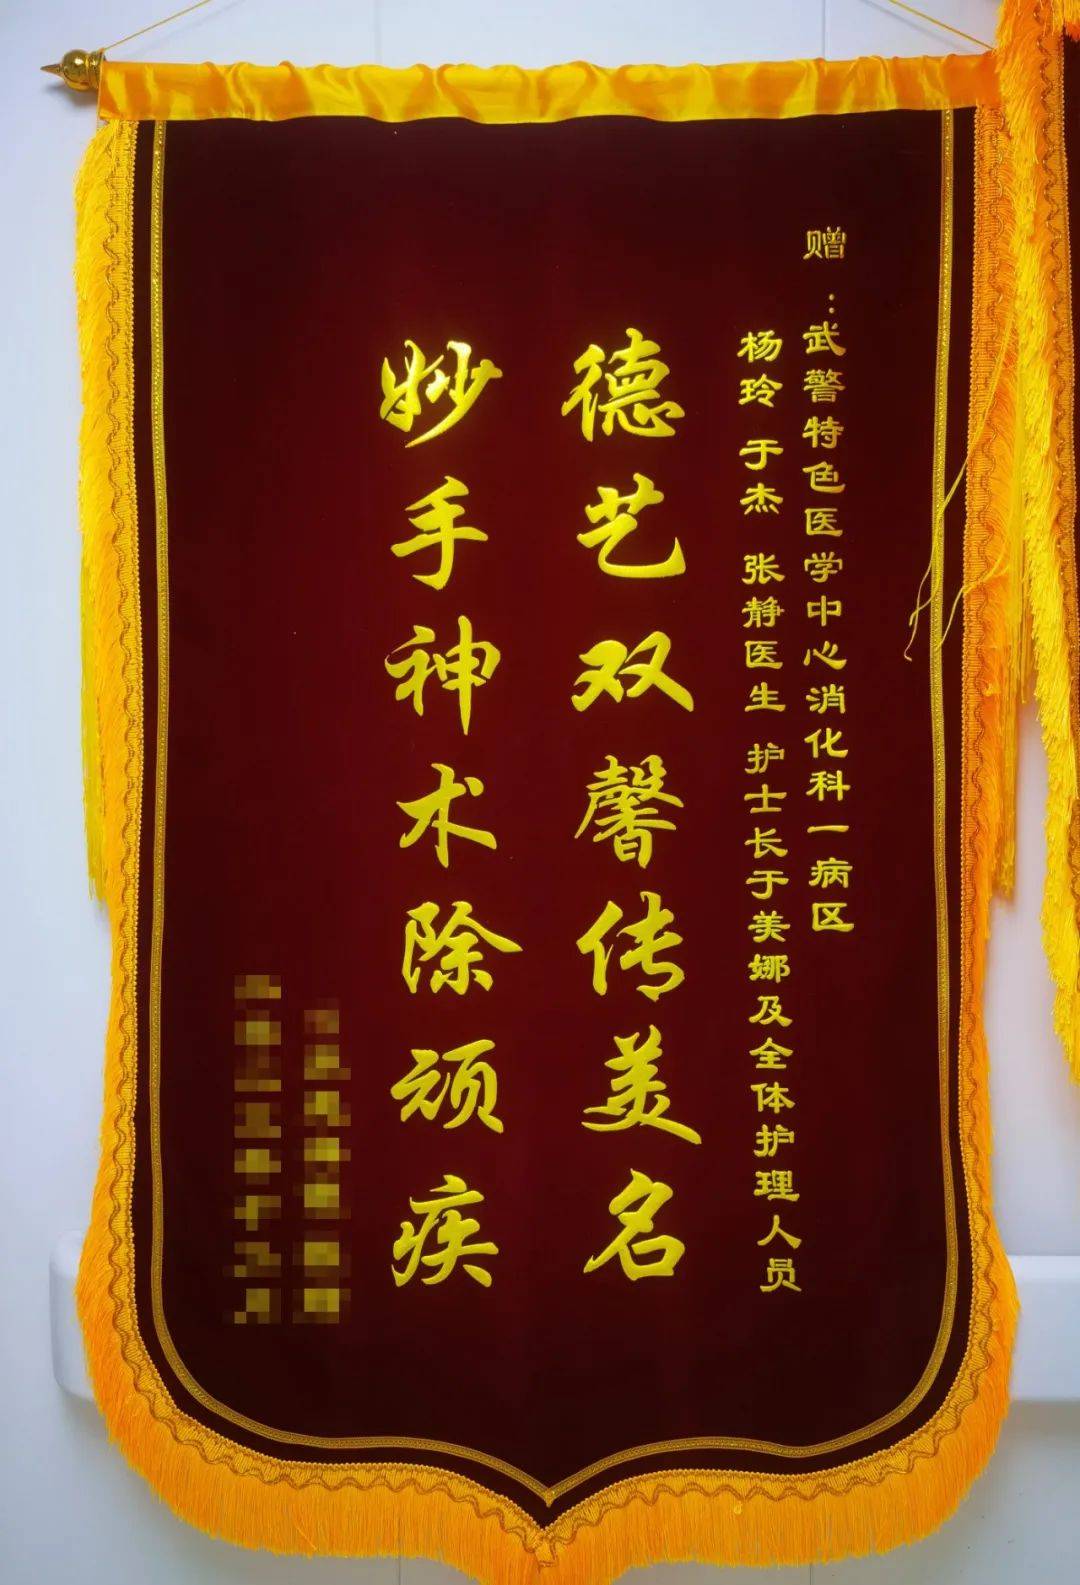 赠：武警特色医学中心消化科一病区
杨玲 于杰 张静医生 护士长于美娜及全体护理人员
德艺双馨传美名
妙手神术除顽疾